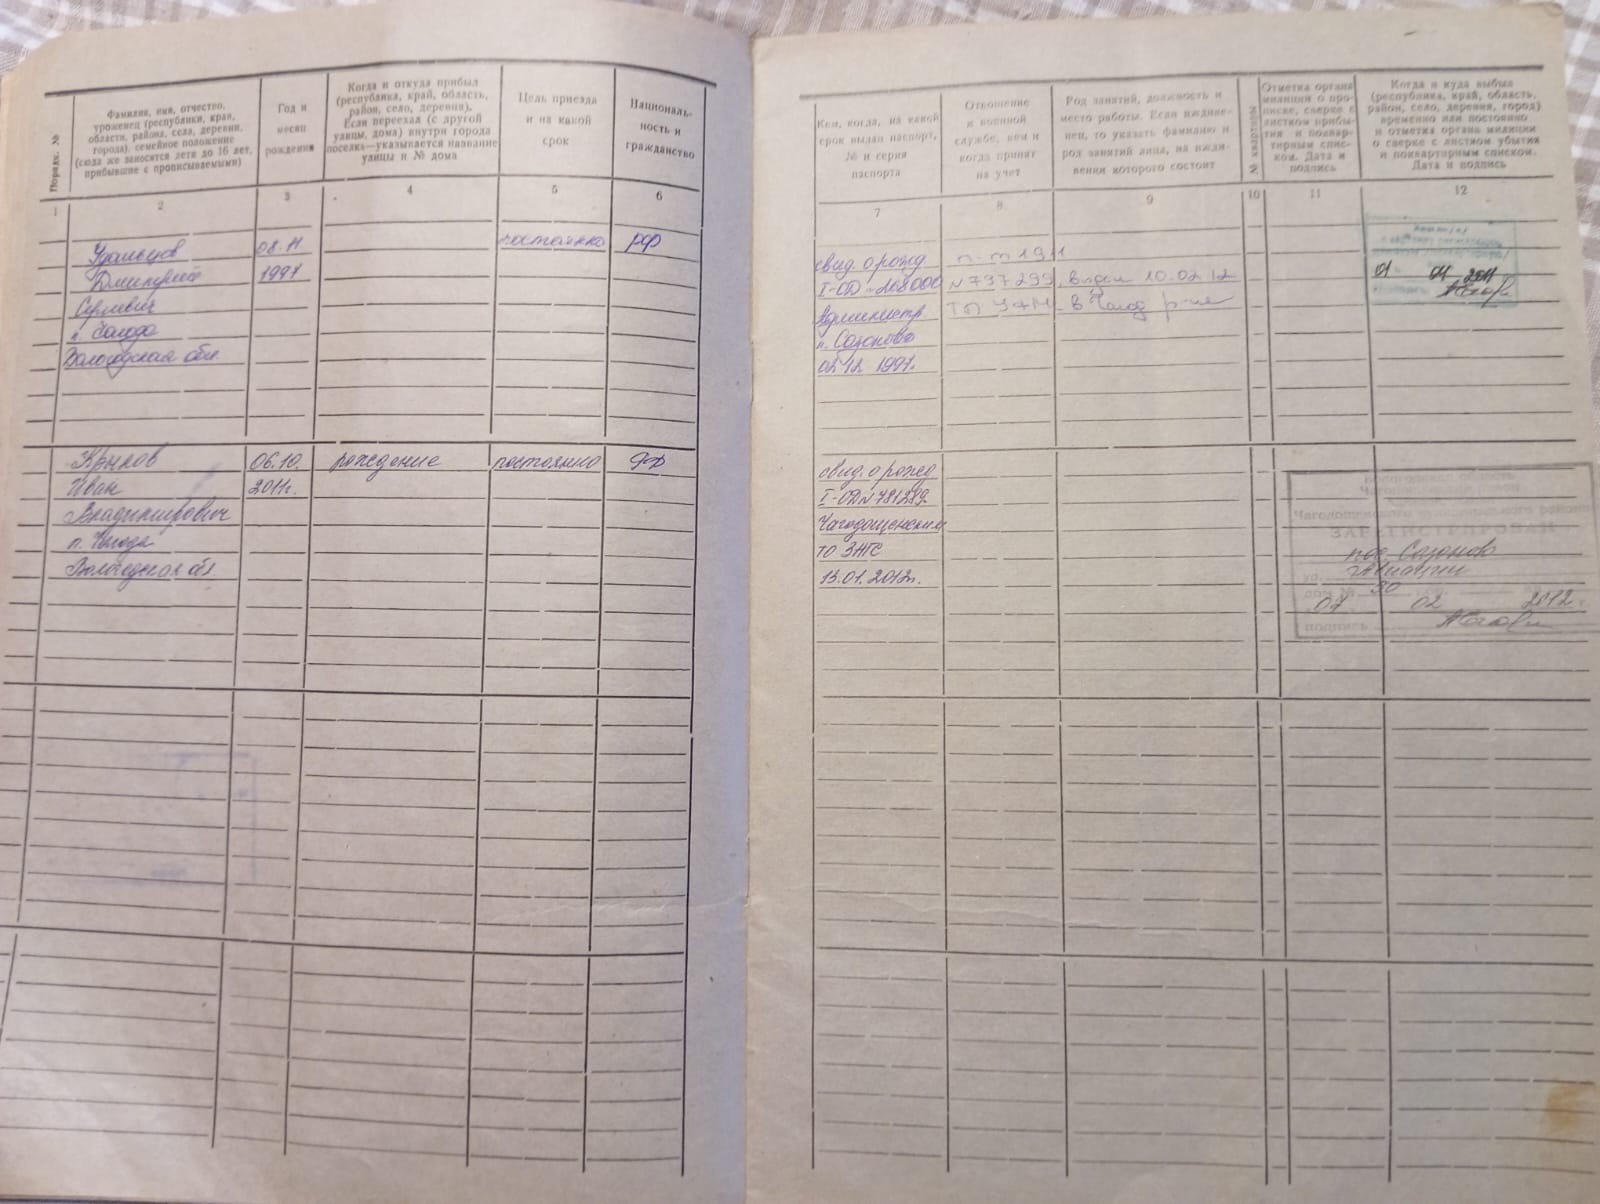 Порядк. №
Фамилия, имя, отчество,
уроженец (республики, края,
области, района, села, деревни,
города), семейное положение
(сюда же заносятся дети до 16 лет,
прибывшие с прописываемыми)
Год и
месяц
рождения
Когда и откуда прибыл
(республика, край, область,
район, село, деревня).
Если переехал (с другой
улицы, дома) внутри города
поселка—указывается название
улицы и № дома
Цель приезда
и на какой
срок
Националь-
ность и
гражданство
1 2 3 4 5 6
Удальцов 08.11 постоянно РФ
Дмитрий 1997
Сергеевич
п. Чагода
Вологодская обл.
Крылов 06.10. рождение постоянно РФ
Иван 2011г.
Владимирович
п. Чагода
Вологодская обл.
Кем, когда, на какой
срок выдан паспорт,
№ и серия
паспорта
Отношение
к военной
службе, кем и
когда принят
на учет
Род занятий, должность и
место работы. Если иждиве-
нец, то указать фамилию и
род занятий лица, на ижди-
вении которого состоит
№ квартиры
Отметка органа
милиции о про-
писке, сверке с
листком прибы-
тия и поквар-
тирным спис-
ком. Дата и
подпись
Когда и куда выбыл
(республика, край, область,
район, село, деревня, город)
временно или постоянно
и отметка органа милиции
о сверке с листком убытия
и поквартирным списком.
Дата и подпись
7 8 9 10 11 12
свид. о рожд. п-т 1911
I-ОД №797299, выдан 10.02.12
Администр. ТП УФМС в Чагод. р-не
п. Сазоново
02.12 1997г.
01 04 2011
свид. о рожд.
I-ОД №781289
Чагодощенским
ТО ЗАГС
13.01.2012г.
Вологодская область
Чагодощенского муниципального района
ЗАРЕГИСТРИРОВАН
пос. Сазоново
ул.
дом № 30
07 02 2012 г.
подпись